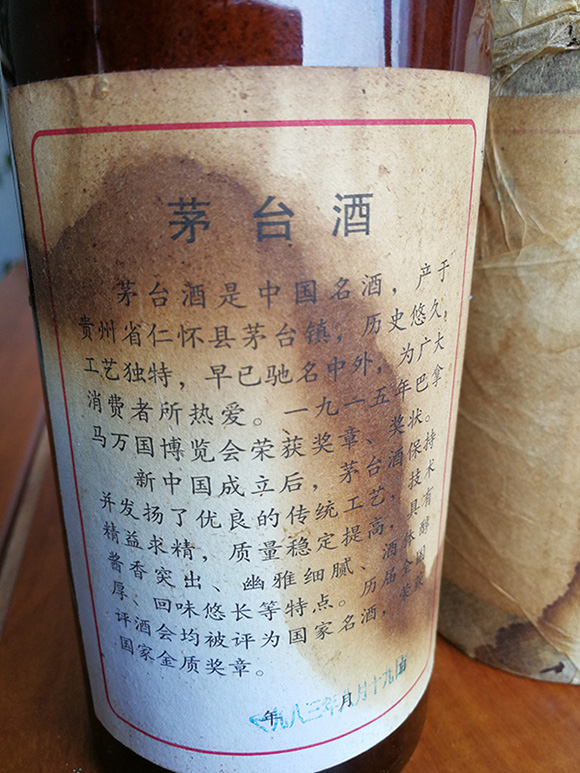 茅台酒
茅台酒是中国名酒，产于
贵州省仁怀县茅台镇，历史悠久，
工艺独特，早已驰名中外，为广大
消费者所热爱。一九一五年巴拿
马万国博览会荣获奖章、奖状。
新中国成立后，茅台酒保持
并发扬了优良的传统工艺，技术
精益求精，质量稳定提高，具有
酱香突出、幽雅细腻、酒体醇
厚、回味悠长等特点。历届全国
评酒会均被评为国家名酒，荣获
国家金质奖章。
九八三年月十九